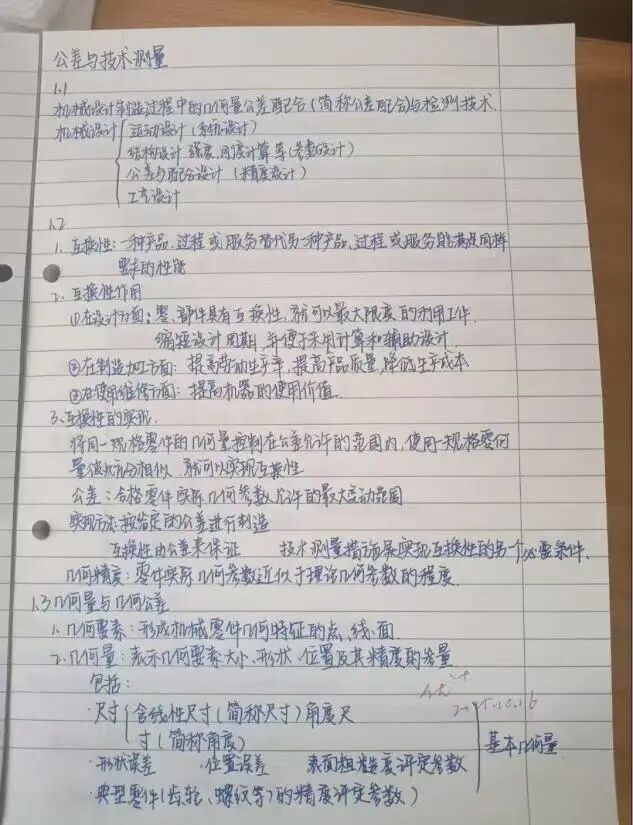 公差与技术测量
1.1
机械设计制造过程中的几何量公差配合(简称公差配合)与检测技术.
机械设计 运动设计(系统设计)
结构设计 强度、刚度计算等(参数设计)
公差与配合设计(精度设计)
工艺设计
1.2
1. 互换性:一种产品、过程或服务替代另一种产品、过程或服务能满足同样
要求的性能
2. 互换性作用
①在设计方面:零、部件具有互换性,就可以最大限度的利用工件.
缩短设计周期,并便于采用计算和辅助设计.
②在制造加工方面:提高劳动生产率,提高产品质量,降低生产成本
③在使用维修方面:提高机器的使用价值.
3、互换性的实现.
将同一规格零件的几何量控制在公差允许的范围内,使同一规格零件
量值充分相似 就可以实现互换性
公差:合格零件实际几何参数允许的最大变动范围
实现方法:按给定的公差进行制造
互换性由公差来保证 技术测量措施是实现互换性的另一个必要条件.
几何精度:零件实际几何参数近似于理论几何参数的程度.
1.3 几何量与几何公差
1. 几何要素:形成机械零件几何特征的点、线、面.
2. 几何量:表示几何要素大小、形状、位置及其精度的参量
包括:
·尺寸 含线性尺寸(简称尺寸)角度尺
寸(简称角度)
·形状误差 ·位置误差 表面粗糙度评定参数
基本几何量
·典型零件(齿轮、螺纹等)的精度评定参数)